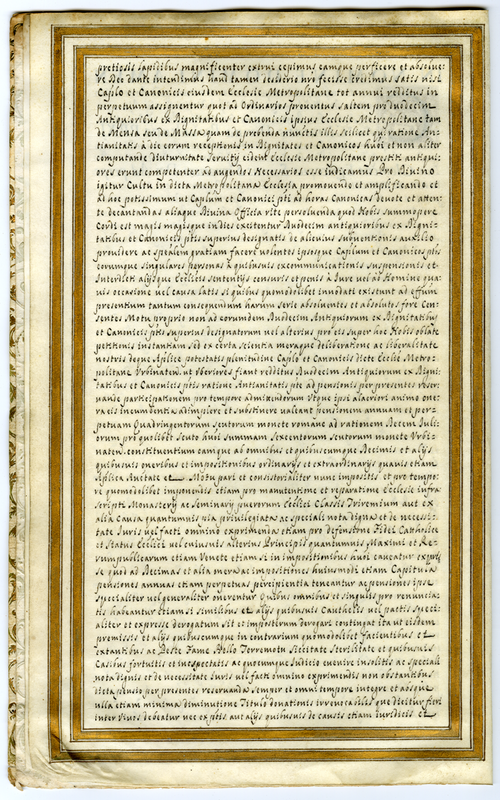 pretiosis lapidibus magnificenter extrui cepimus eamque perficere et absolue-
re Deo dante intendimus haud tamen desiderio nro fecisse Credimus satis nisi
Caplo et Canonicis eiusdem Ecclesie Metropolitane tot annui redditus in
perpetuum assignentur quot ad Ordinarios prouentus saltem pro duodecim
Antiquioribus ex Dignitatibus et Canonicis ipsius Ecclesie Metropolitane tam
de Mensa seu de Massa quam de prebenda nunctis illis scilicet qui ratione An-
tianitatis à die eorum receptionis in Dignitates et Canonicos huiusmodi et non aliter
computande diuturnitate seruitij eidem Ecclesie Metropolitane prestiti antiqui-
ores erunt competenter ad augendos Necessarios esse iudicamus Pro Diuino
igitur Cultu in dicta Metropolitana Ecclesia promouendo et amplificando et
ad hoc potissimum ut Caplum et Canonici pti ad horas Canonicas deuote et atten-
te decantandas aliaque Diuina Officia rite persoluenda quod Nobis summopere
Cordi est magis magisque indies excitentur Duodecim antiquioribus ex Digni-
tatibus et Canonicis ptis superius designatis de alicuius subuentionis auxilio
prouidere ac spealem gratiam facere volentes ipsosque Caplum et Canonicos ptos
eorumque singulares personas à quibusuis excommunicationis suspensionis et
Interdicti alijsque Ecclicis sententijs censuris et penis à Iure uel ab Homine qua-
uis occasione uel causa latis si quibus quomodolibet innodati existunt ad effum
presentium tantum consequendum harum serie absoluentes et absolutos fore Cen-
sentes Motu proprio non ad eorumdem Duodecim Antiquiorum ex Dignitatibus
et Canonicis ptis superius designatorum uel alterius pro eis super hoc Nobis oblate
petitionis instantiam sed ex certa scientia meraque deliberatione ac liberalitate
nostris deque Aplice potestatis plenitudine Caplo et Canonicis dicte Ecclie Metro-
politane Vrbinaten. ut uberiores fiant redditus Duodecim Antiquiorum ex Digni-
tatibus et Canonicis ptis ratione Antianitatis pte ad pensionis per presentes reser-
uande participationem pro tempore admittendorum Vtque ipsi alacriori animo one-
ra eis incumbentia adimplere et substinere ualeant pensionem annuam et per-
petuam Quadringentorum scutorum monete romane ad rationem Decem Iulio-
orum pro quolibet scuto huiusmodi summam sexcentorum scutorum monete Vrbi-
naten. constituentium eamque ab omnibus et quibuscumque Decimis et alijs
quibusuis oneribus et impositionibus ordinarijs et extraordinarijs quauis etiam
Aplica Auctate et Motu pari et consistorialiter nunc impositis et pro tempo-
re quomodolibet imponendis etiam pro manutentione et reparatione Ecclesie infra-
scripti Monasterij ac Seminarij puerorum Ecclicis Classis Triremium aut ex
alia Causa quantumuis uia priuilegiata ac speciali nota digna et de necessi-
tate Iuris uel facti omnino exprimenda etiam pro defensione Fidei Catholice
et Status Ecclici uel cuiusuis alterius Principis quantumuis Maximi et Re-
rumpublicarum etiam Venete etiam si in impositionibus huiusmodi caueatur expresse
se quod ad Decimas et alia onera ac impositiones huiusmodi etiam Capitula
pensiones annuas etiam perpetuas percipientia teneantur ac pensiones ipse
specialiter uel generaliter onerentur Quibus omnibus et singulis pro renuncia-
tis habeantur Etiam si similibus et alijs quibusuis Cauthelis uel pactis speci-
aliter et expresse derogatum sit et imposterum derogari contingat ita ut eisdem
premissis et alijs quibuscumque in contrarium quomodolibet facientibus et
extantibus ac Peste Fame Bello Terremotu Siccitate Sterilitate et quibusuis
Casibus fortuitis et inspectatis ac quocumque Iudicio euenire insolitis ac speciali
nota dignis et de necessitate Iuris uel facti omnino exprimentis non obstantibus
dicta pensio per presentes reseruanda semper et omni tempore integre et absque
ulla etiam minima diminutione Titulo donationis irreuocabilis que dicitur fieri
inter Viuos debeatur nec ex ptis aut alijs quibusuis de causis etiam Iuridicis et